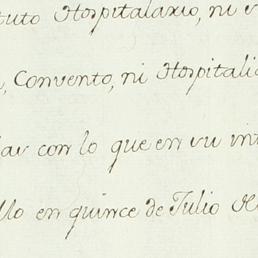 tuto Hospitalario, ni
Convento, ni Hospitali
con lo que en su in
en quince de Julio de